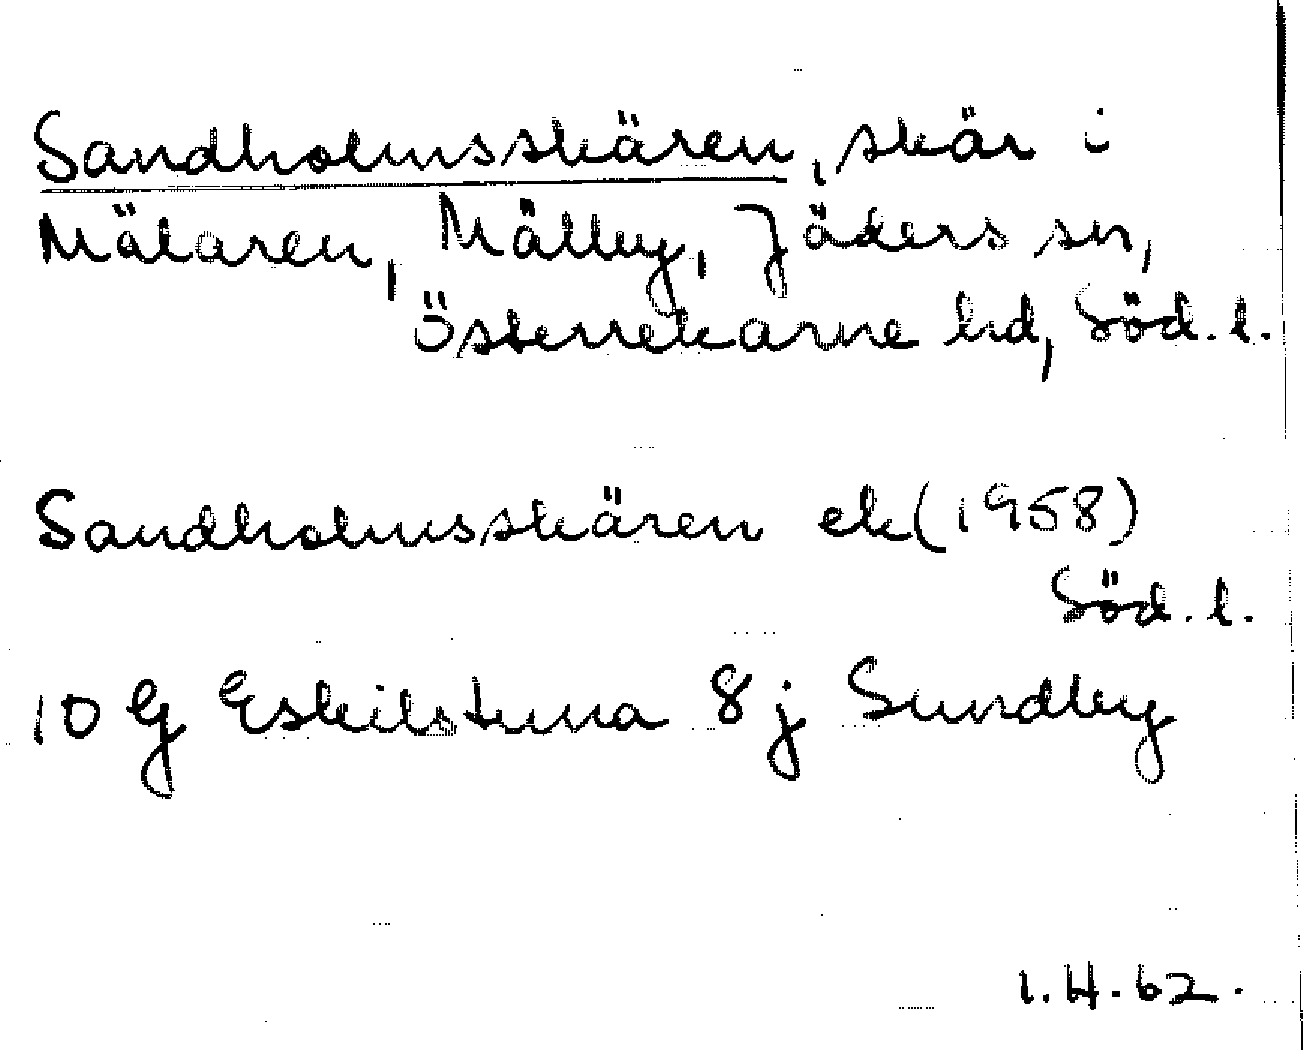 Sandholmsskären, skär i
Mälaren, Mälby, Jäders sn,
Österrekarne hd, Söd. l.
Sandholmsskären ek (1958)
Söd. l.
10 G Eskilstuna 8 j Sundby
I. H. 62.